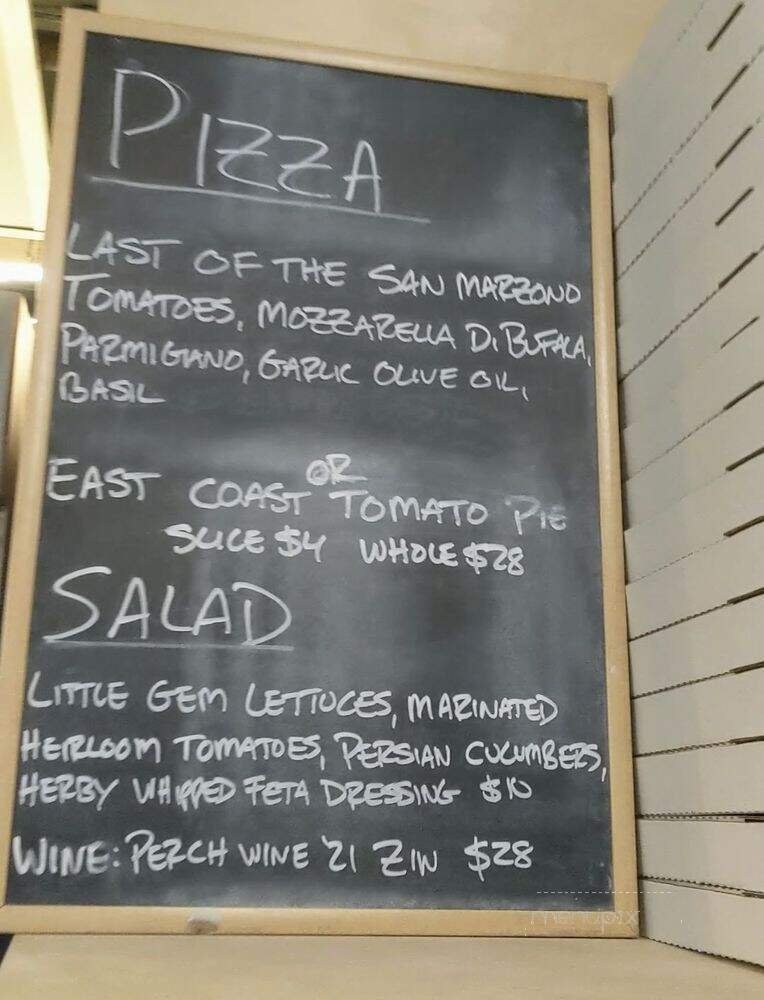 PIZZA
LAST OF THE SAN MARZONO
TOMATOES, MOZZARELLA DI BUFALA,
PARMIGIANO, GARLIC OLIVE OIL,
BASIL
OR
EAST COAST TOMATO PIE
SLICE $4 WHOLE $28
SALAD
LITTLE GEM LETTUCES, MARINATED
HEIRLOOM TOMATOES, PERSIAN CUCUMBERS,
HERBY WHIPPED FETA DRESSING $10
WINE: PERCH WINE '21 ZIN $28
menupix